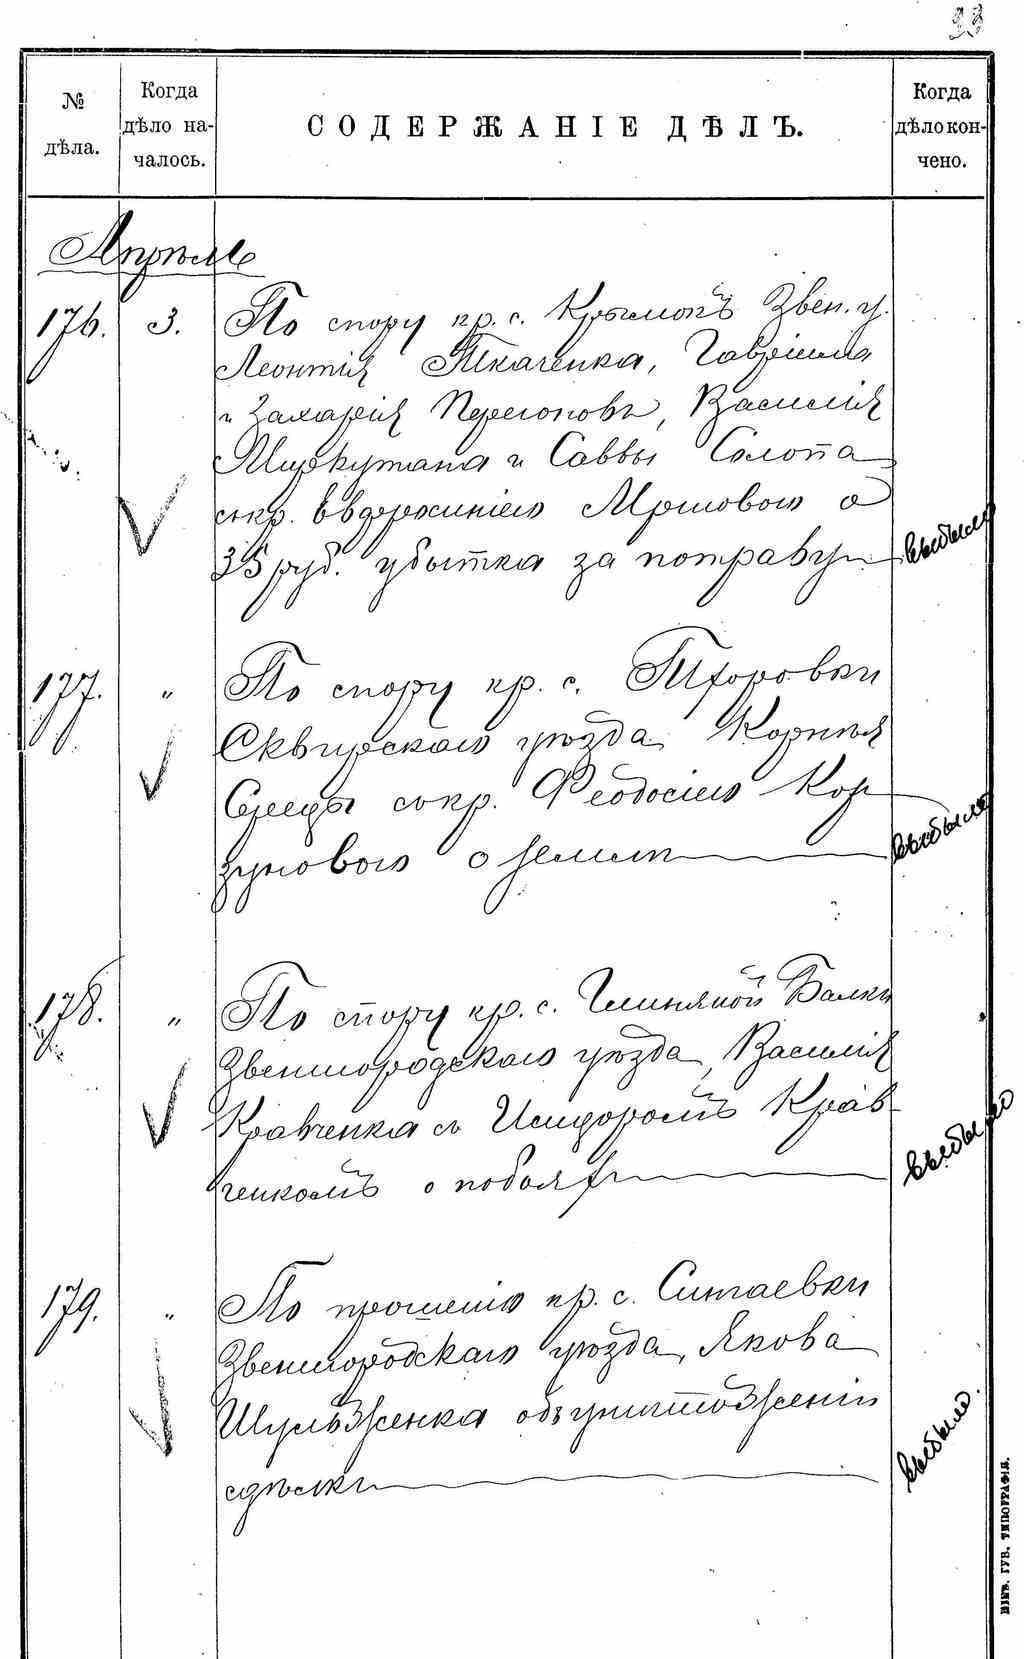 33
№ дѣла.
Когда дѣло началось.
СОДЕРЖАНІЕ ДѢЛЪ.
Когда дѣло кончено.
Апрѣль
176. 3. По спору кр. с. Крымокъ Звен. у.
Леонтія Ткаченка, Гавріила
и Захарія Перегоновъ, Василія
и Саввы
съ кр. Евдокимомъ о
35 руб. убытка за потраву выбыло
177. " По спору кр. с. Тхоровки
Сквирскаго уѣзда Корнѣя
Середы съ кр. Феодосіею Кор-
зуновою о землѣ выбыло
178. " По спору кр. с. Глиняной Балки
Звенигородскаго уѣзда, Василія
Кравченка съ Исидоромъ Крав-
ченкомъ о побояхъ выбыло
179. " По прошенію кр. с. Ситаевки
Звенигородскаго уѣзда, Якова
Шульженка объ уничтоженіи
сдѣлки выбыло
ГУБ. ТИПОГРАФІЯ.